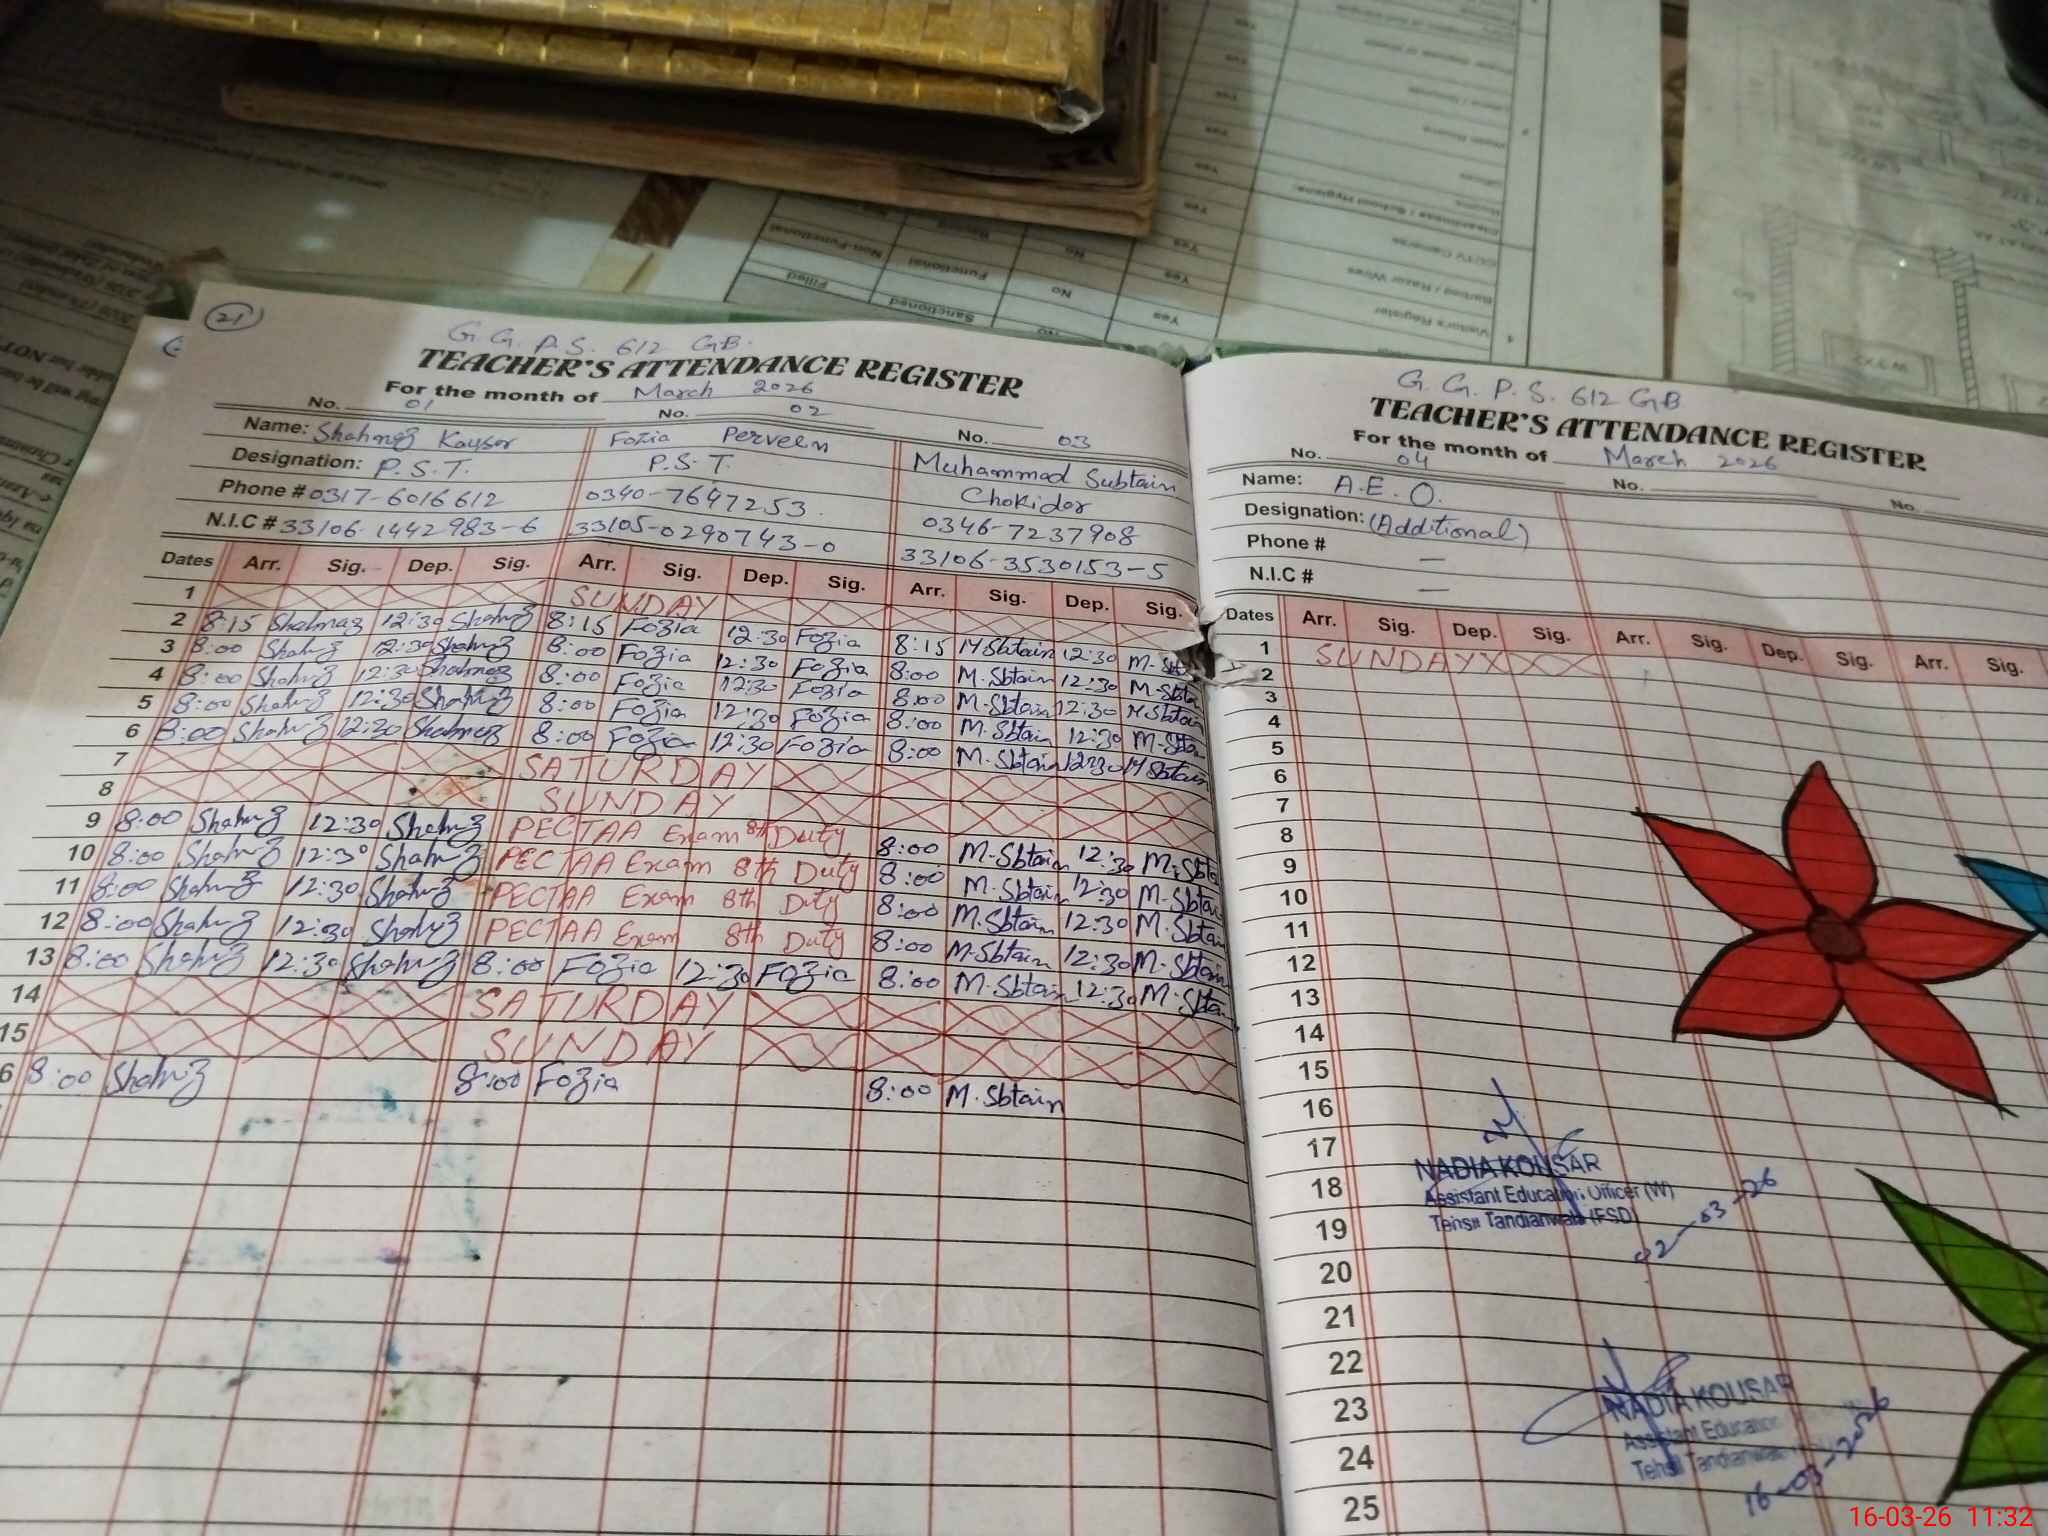 21
G. G. P. S. 612 GB.
TEACHER'S ATTENDANCE REGISTER
For the month of March 2026
No. 01 No. 02 No. 03
Name: Shahnaz Kausar Fozia Perveen Muhammad Subtain
Designation: P.S.T. P.S.T. Chokidar
Phone # 0317-6016612 0340-7647253. 0346-7237908
N.I.C # 33106-1442983-6 33105-0290743-0 33106-3530153-5
Dates Arr. Sig. Dep. Sig. Arr. Sig. Dep. Sig. Arr. Sig. Dep. Sig.
1 SUNDAY
2 8:15 Shahnaz 12:30 Shahnaz 8:15 Fozia 12:30 Fozia 8:15 M Sbtain 12:30 M-Sbta
3 8:00 Shahnaz 12:30 Shahnaz 8:00 Fozia 12:30 Fozia 8:00 M. Sbtain 12:30 M-Sbta
4 8:00 Shahnaz 12:30 Shahnaz 8:00 Fozia 12:30 Fozia 8:00 M. Sbtain 12:30 M Sbtain
5 8:00 Shahnaz 12:30 Shahnaz 8:00 Fozia 12:30 Fozia 8:00 M. Sbtain 12:30 M-Sbta
6 8:00 Shahnaz 12:30 Shahnaz 8:00 Fozia 12:30 Fozia 8:00 M. Sbtain 12:30 M Sbtain
7 SATURDAY
8 SUNDAY
9 8:00 Shahnaz 12:30 Shahnaz PECTAA Exam 8th Duty 8:00 M-Sbtain 12:30 M-Sbta
10 8:00 Shahnaz 12:30 Shahnaz PECTAA Exam 8th Duty 8:00 M. Sbtain 12:30 M-Sbtai
11 8:00 Shahnaz 12:30 Shahnaz PECTAA Exam 8th Duty 8:00 M. Sbtain 12:30 M. Sbtain
12 8:00 Shahnaz 12:30 Shahnaz PECTAA Exam 8th Duty 8:00 M-Sbtain 12:30 M-Sbtain
13 8:00 Shahnaz 12:30 Shahnaz 8:00 Fozia 12:30 Fozia 8:00 M-Sbtain 12:30 M-Sbta
14 SATURDAY
15 SUNDAY
6 8:00 Shahnaz 8:00 Fozia 8:00 M. Sbtain
G. G. P. S. 612 GB
TEACHER'S ATTENDANCE REGISTER
For the month of March 2026
No. 04 No. No.
Name: A.E.O.
Designation: (Additional)
Phone # —
N.I.C # —
Dates Arr. Sig. Dep. Sig. Arr. Sig. Dep. Sig. Arr. Sig.
1 SUNDAY
2
3
4
5
6
7
8
9
10
11
12
13
14
15
16
17
18
19
20
21
22
23
24
25
NADIA KOUSAR
Assistant Education Officer (W)
Tehsil Tandianwala (FSD)
02-03-26
NADIA KOUSAR
Assistant Education
Tehsil Tandianwala
16-03-2026
Sanctioned
Filled
Functional
Non-Functional
Visitor's Register
Barbed / Razor Wires
CCTV Cameras
Cleanliness / School Hygiene:
Yes
No
16-03-26 11:32